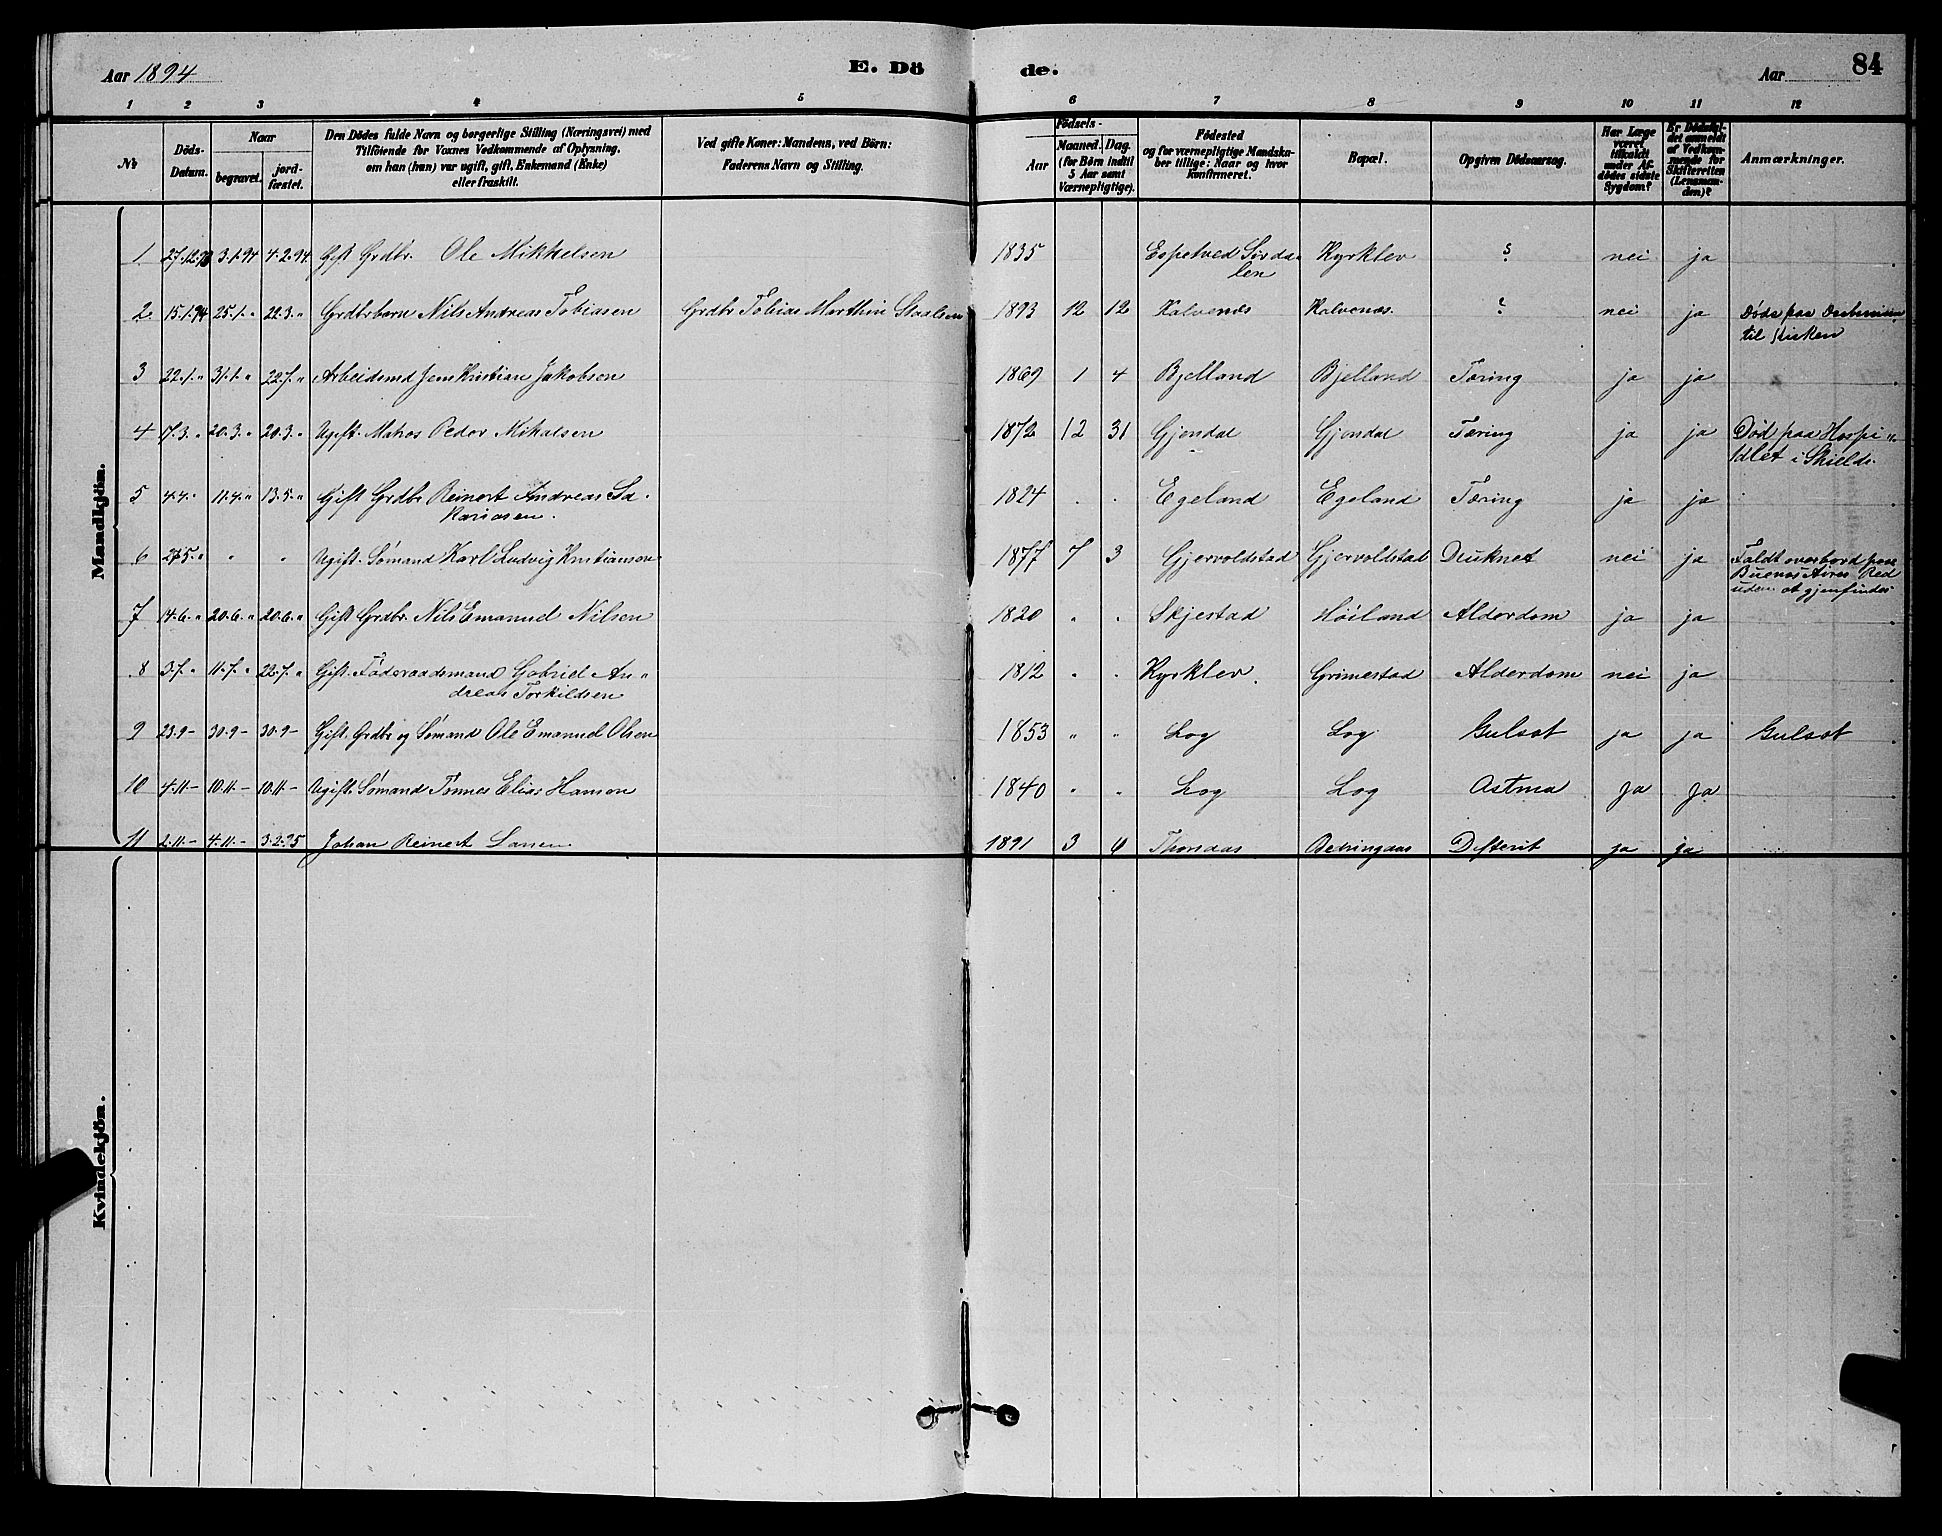 Aar 1894 E. Dö de. Aar 84
1 2 3 4 5 6 7 8 9 10 11 12
No
Döds-Datum.
Naar
begravet.
jord-fæstet.
Den Dödes fulde Navn og borgerlige Stilling (Næringsvei) med
Tilföiende for Voxnes Vedkommende af Oplysning,
om han (hun) var ugift, gift, Enkemand (Enke)
eller fraskilt.
Ved gifte Koner: Mandens, ved Börn:
Faderens Navn og Stilling.
Födsels-
Aar
Maaned. Dag.
(for Börn indtil
5 Aar samt
Værnepligtige).
Födested
og for værnepligtige Mandska-
ber tillige: Naar og hvor
konfirmeret.
Bopæl.
Opgiven Dödsaarsag.
Har Læge
været
tilkaldt
under Af-
dödes sidste
Sygdom?
Er Dödsfal-
det anmeldt
af Vedkom-
mende for
Skifteretten
(Lensman-
den)?
Anmærkninger.
Mandkjön.
1 27.12.93 3.1.94 4.2.94 Gift Grdbr. Ole Mikkelsen 1835 Espetved Sirda- Kyrklev ? nei ja
len
2 15.1.94 25.1.„ 22.3.„ Grdbrbarn Nils Andreas Tobiasen Grdbr Tobias Marthin 1893 12 12 Kalvenæs Kalvenæs. ? nei ja Døde paa
til Kirken
3 22.1.„ 31.1.„ 22.7.„ Arbeidsmd Jens Kristian Jakobsen 1869 1 4 Bjelland Bjelland Tæring ja ja
4 17.3.„ 20.3.„ 20.3.„ Ugift. Matros Peder Mikalsen 1872 12 31 Gjendal Gjendal Tæring ja ja Død paa Hospi„
talet i Shields
5 4.4.„ 11.4.„ 13.5.„ Gift Grdbr Reinert Andreas Sa- 1824 „ „ Egeland Egeland Tæring ja ja
kariasen.
6 27.5.„ „ „ Ugift. Sømand Karl Ludvig Kristiansen 1877 7 3 Gjervoldstad Gjervoldstad Druknet nei ja Faldt overbord paa
Buenos Aires Red
uden at gjenfindes
7 14.6.„ 20.6.„ 20.6.„ Gift Grdbr. Nils Emanuel Nilsen 1820 „ „ Skjestad Høiland Alderdom ja ja
8 3.7.„ 11.7.„ 22.7.„ Gift. Føderaadsmand Gabriel An„ 1812 „ „ Kyrklev. Grimestad Alderdom nei ja
dreas Torkildsen
9 23.9- 30.9- 30.9- Gift. Grdbr og Sømand Ole Emanuel Olsen 1853 „ „ Log Log Gulsot ja ja Gulsot
10 4.11- 10.11- 10.11- Ugift. Sømand Tønnes Elias Hansen 1840 „ „ Log Log Astma ja ja
11 2.11- 4.11- 3.2.95 Johan Reinert Larsen 1891 3 4 Difterit ja ja
Kvindekjön.